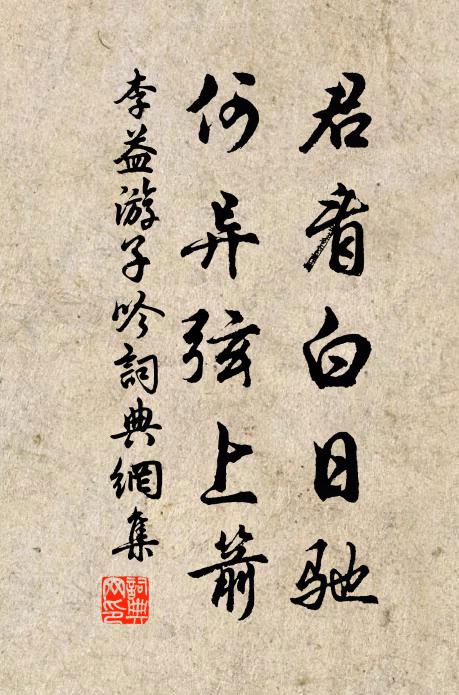 君看白日驰
何异弦上箭
李益游子吟詞典網集
詞典
网印